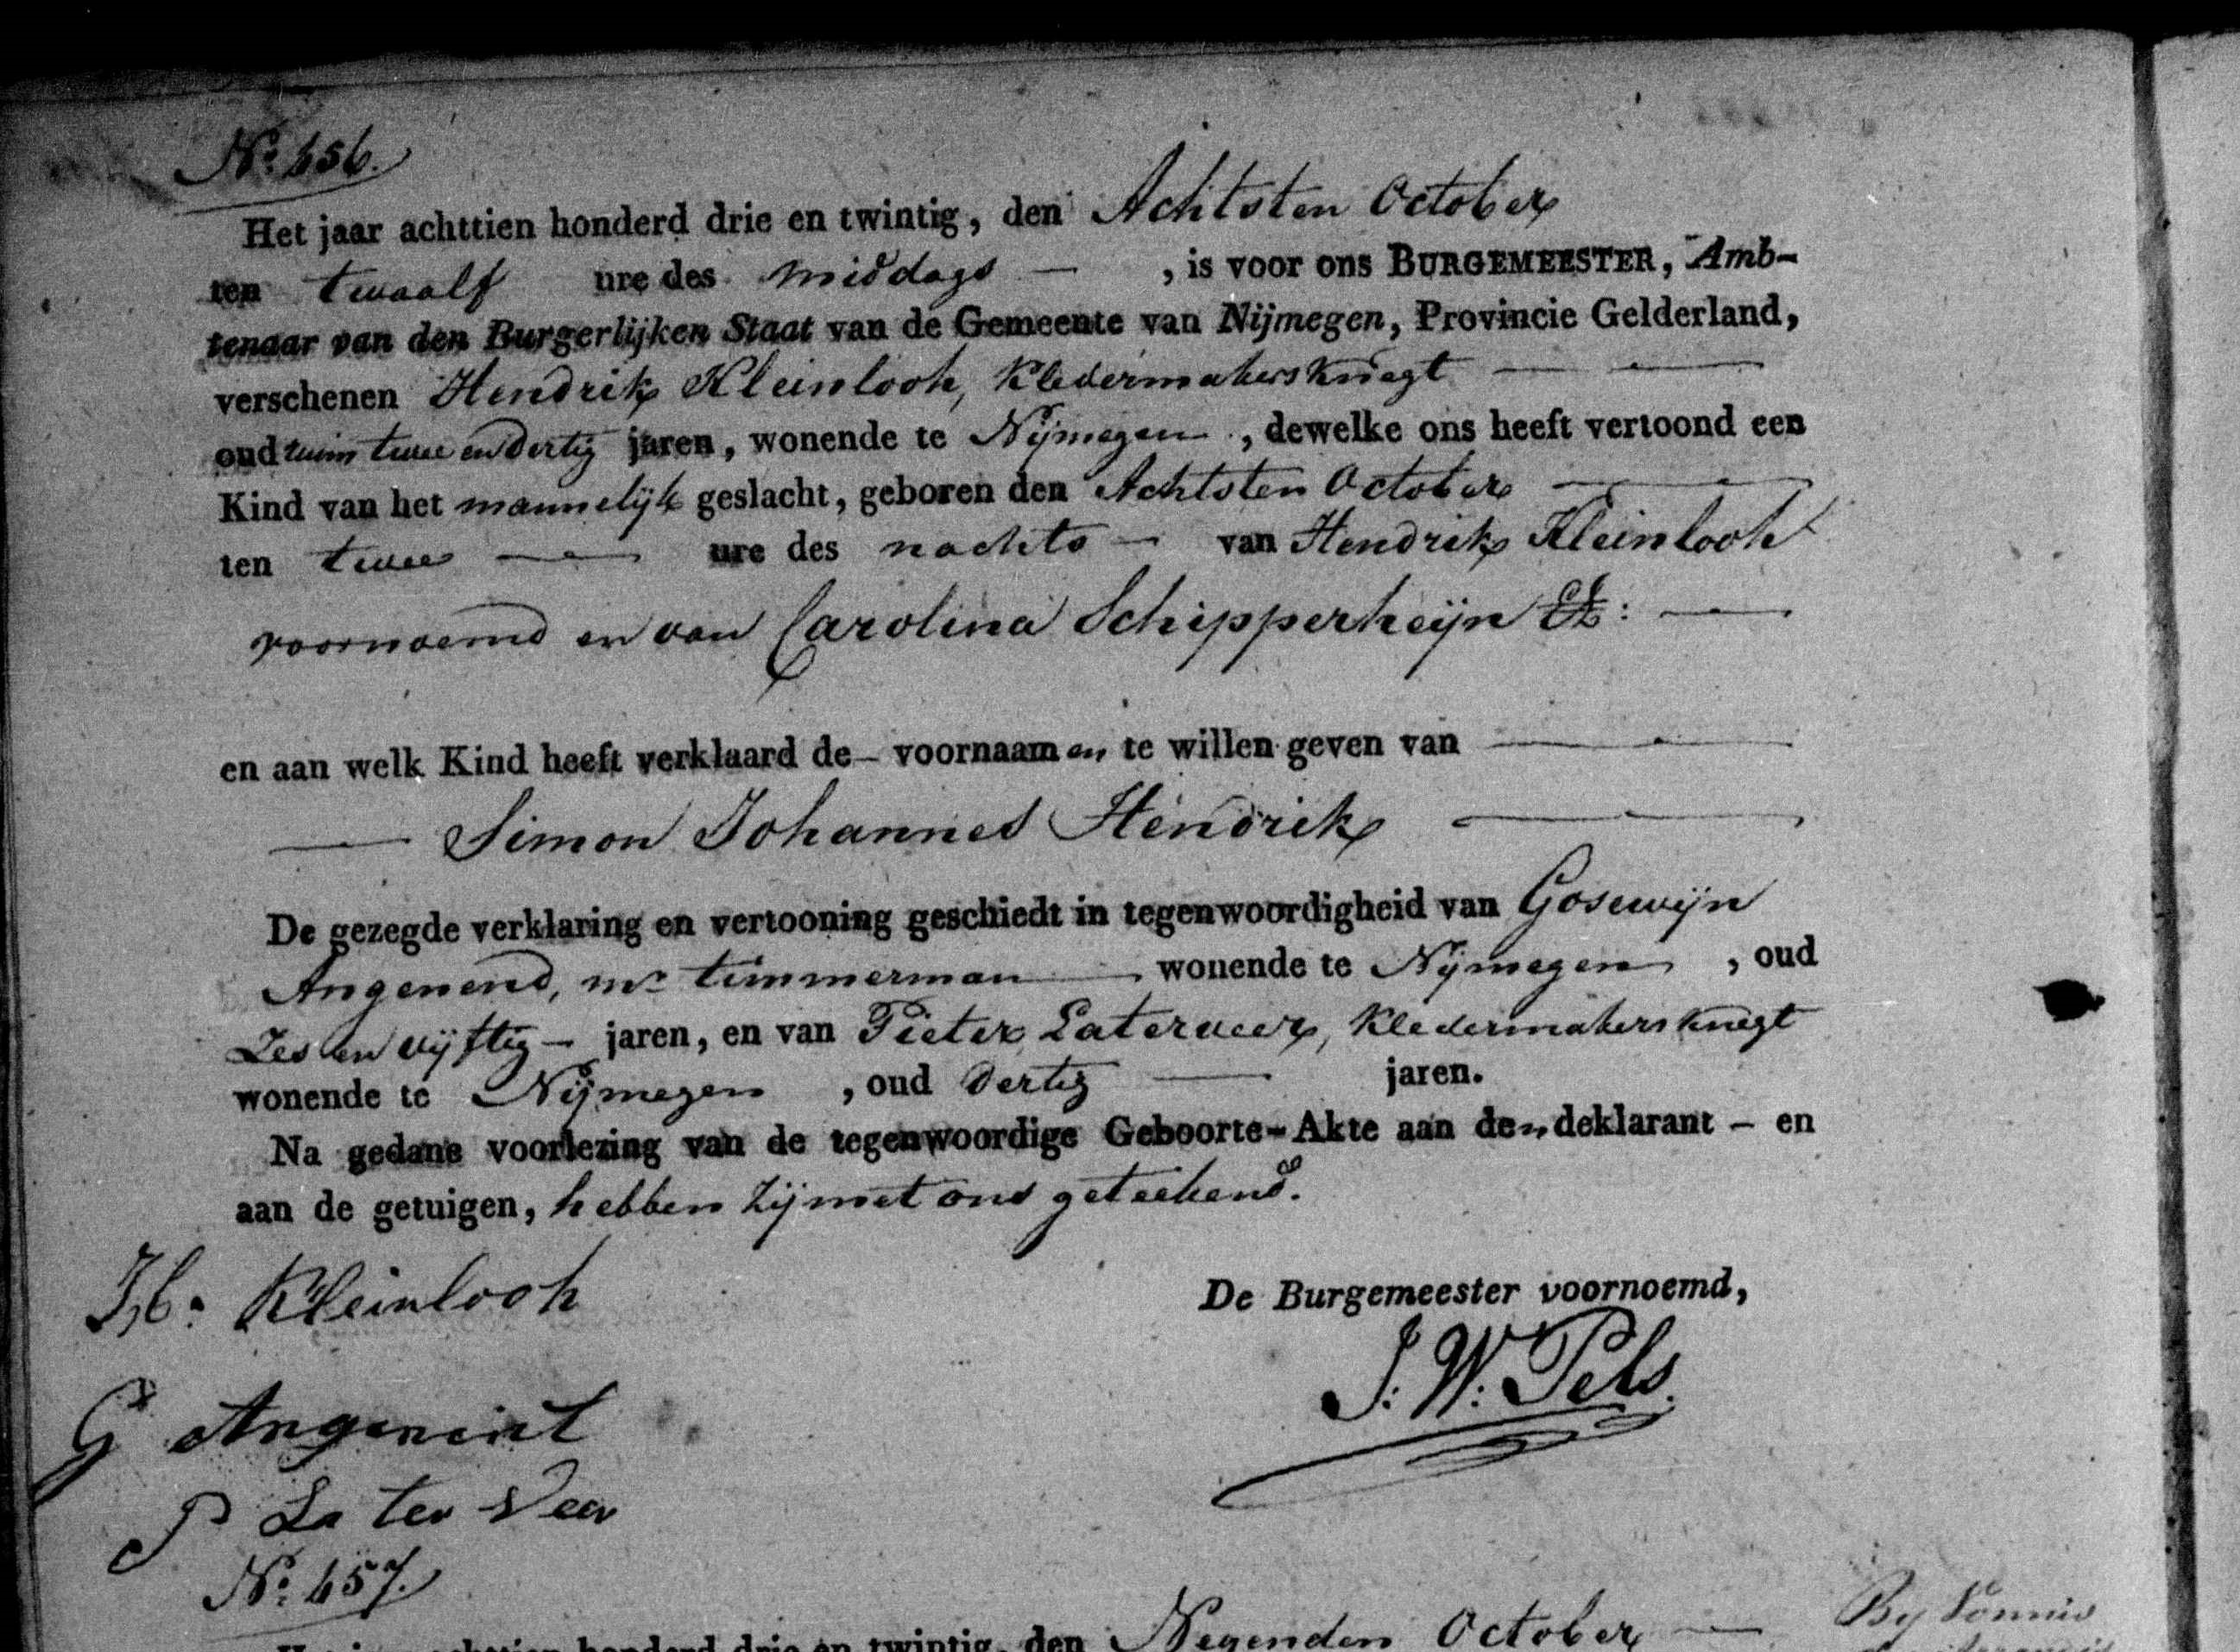 No. 456.
Het jaar achttien honderd drie en twintig, den Achtsten October
ten twaalf ure des middags —, is voor ons BURGEMEESTER, Amb-
tenaar van den Burgerlijken Staat van de Gemeente van Nijmegen, Provincie Gelderland,
verschenen Hendrik Kleinlooh, Kledermakersknegt
oud ruim twee en dertig jaren, wonende te Nijmegen, dewelke ons heeft vertoond een
Kind van het mannelijk geslacht, geboren den Achtsten October
ten twee — ure des nachts — van Hendrik Kleinlooh
voornoemd en van Carolina Schipperheijn
en aan welk Kind heeft verklaard de – voornaamen te willen geven van
— Simon Johannes Hendrik —
De gezegde verklaring en vertooning geschiedt in tegenwoordigheid van Gosewijn
Angenend, mr timmerman — wonende te Nijmegen, oud
Zes en vijftig – jaren, en van Pieter Laterveer, Kledermakersknegt
wonende te Nijmegen, oud dertig — jaren.
Na gedane voorlezing van de tegenwoordige Geboorte-Akte aan den deklarant – en
aan de getuigen, hebben zij met ons geteekend.
H: Kleinlooh
De Burgemeester voornoemd,
J: W: Pels.
G Angenint
P La ter Veer
No. 457.
achttien honderd drie en twintig, den Negenden October —
By